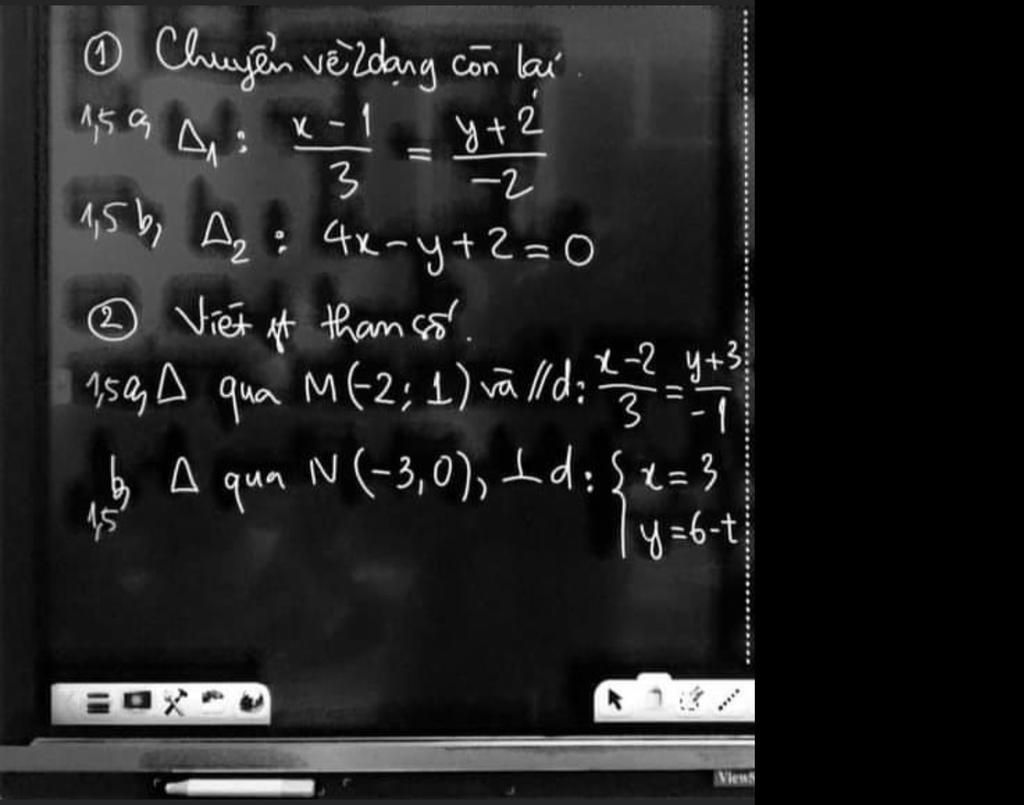 ① Chuyển về 2 dạng còn lại.
1,5 a, Δ₁ : (x - 1)/3 = (y + 2)/(-2)
1,5 b, Δ₂ : 4x - y + 2 = 0
② Viết pt tham số.
1,5 a, Δ qua M(-2; 1) và // d : (x - 2)/3 = (y + 3)/(-1)
1,5 b, Δ qua N(-3, 0), ⊥ d : { x = 3
y = 6 - t
ViewS